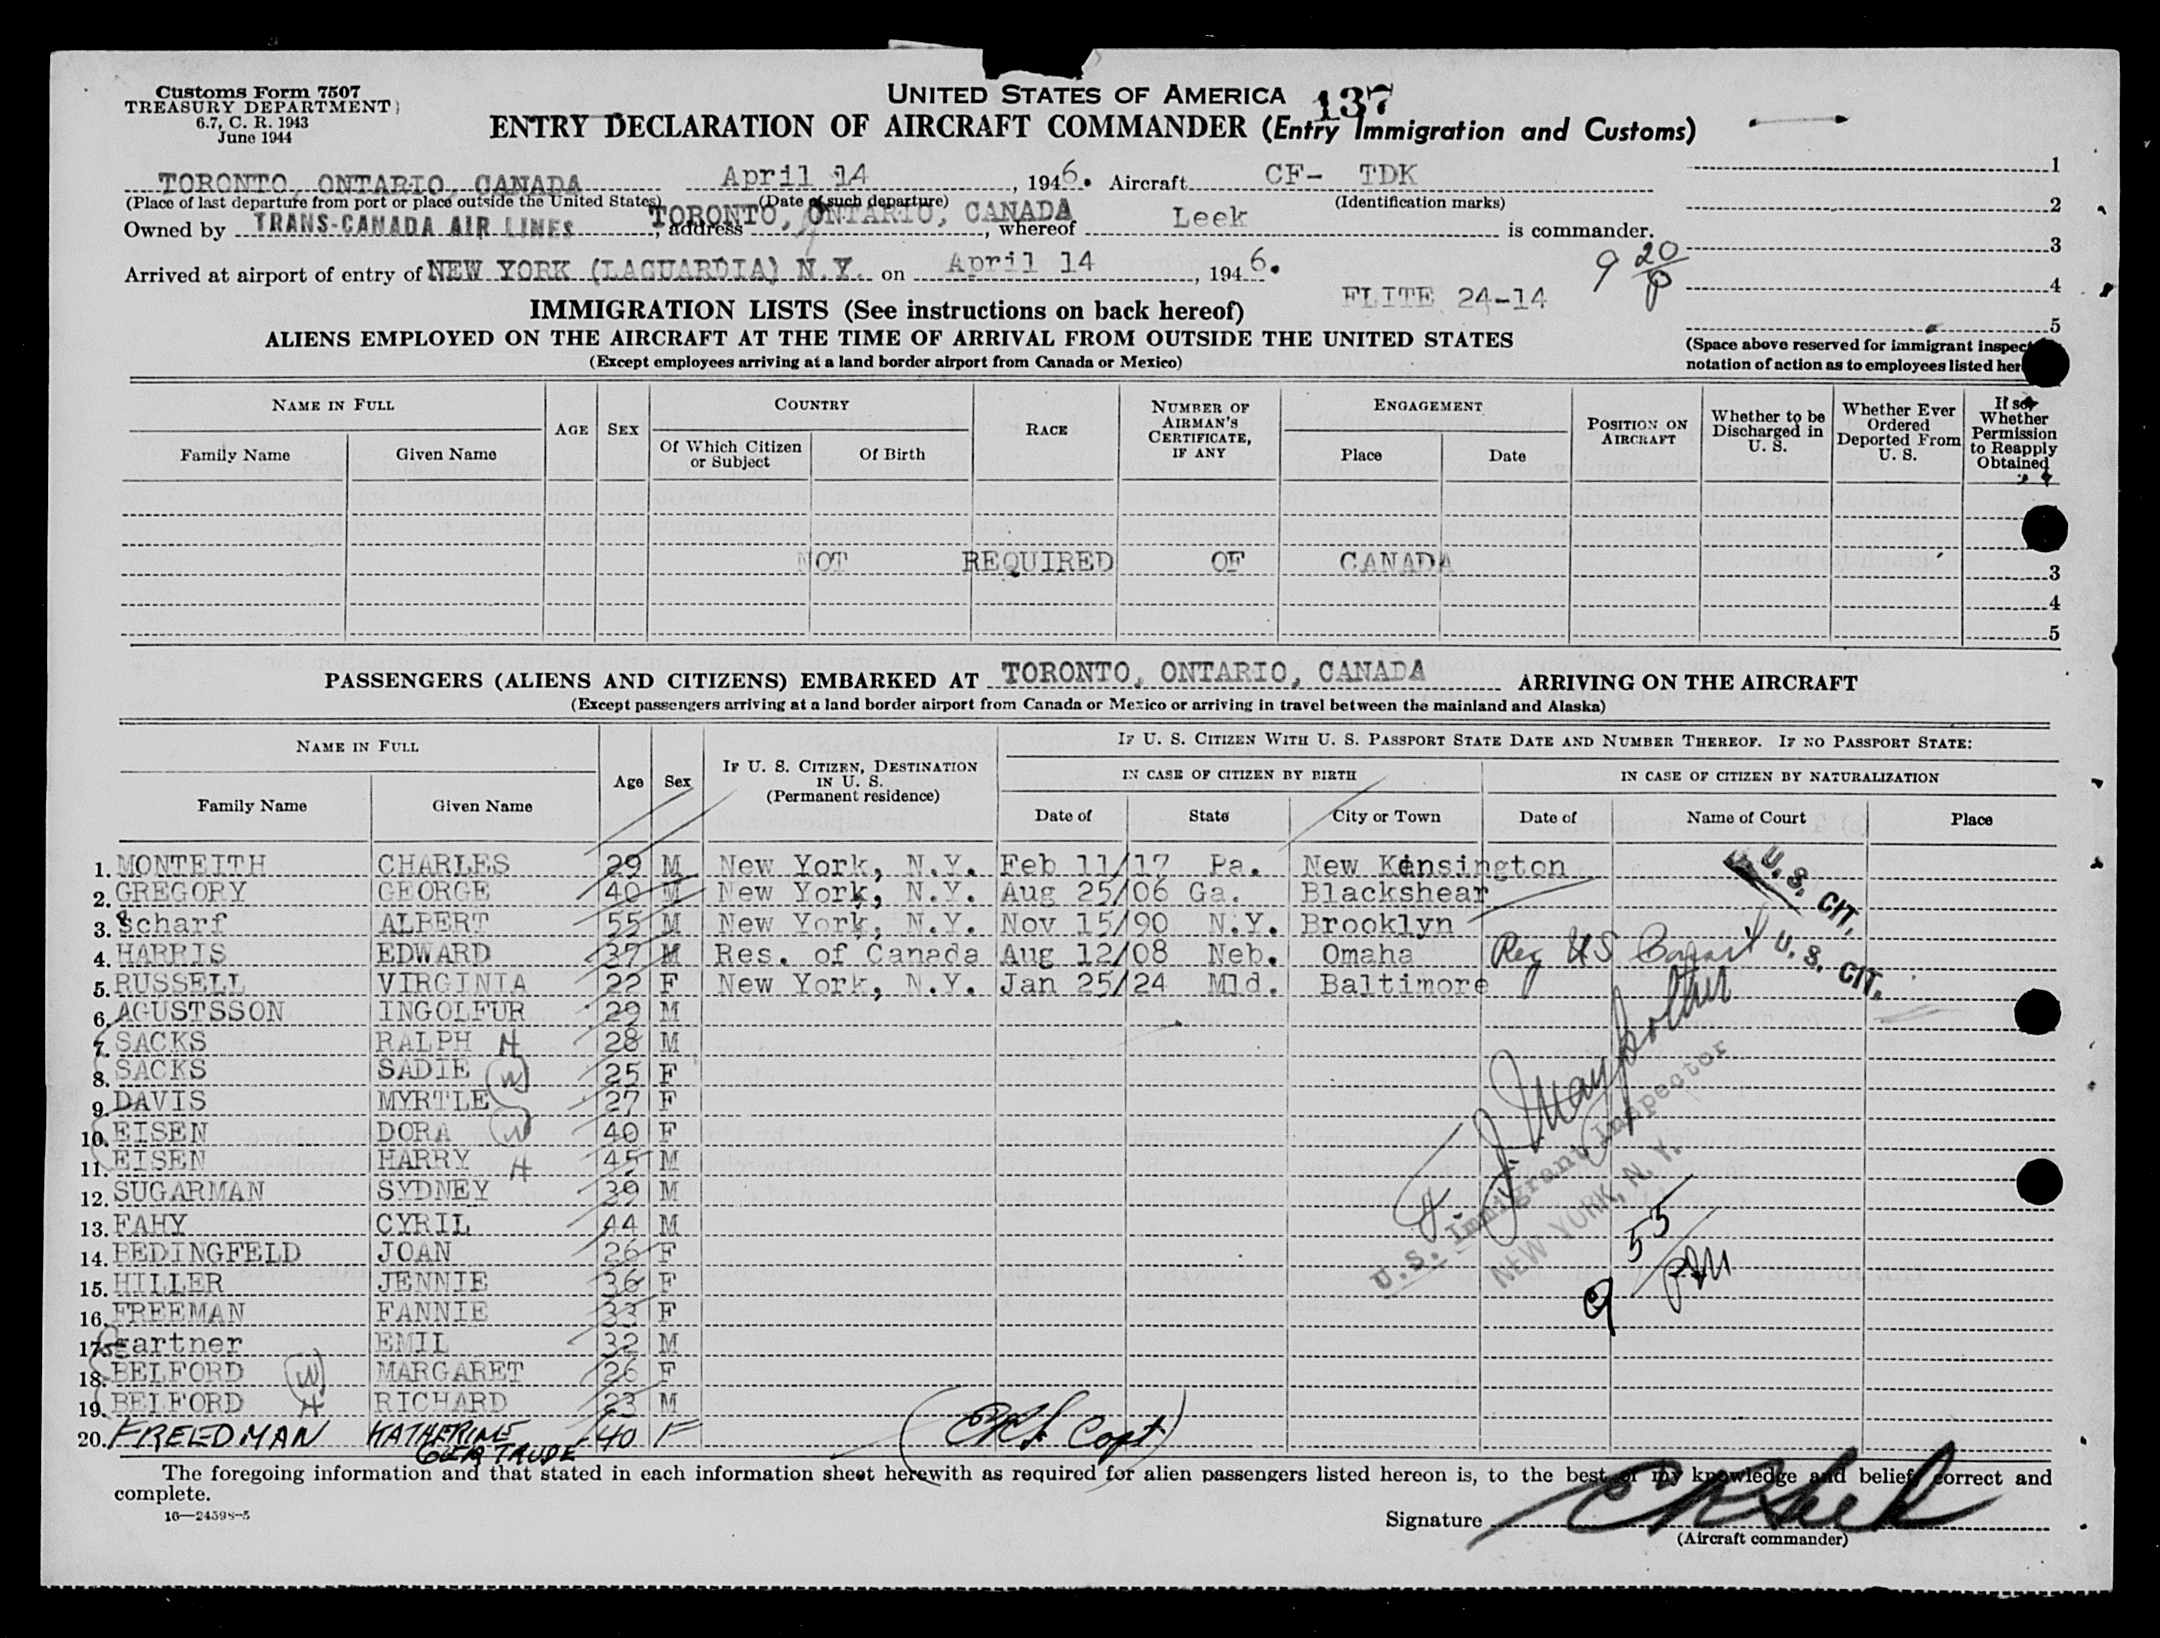 Customs Form 7507
TREASURY DEPARTMENT
6.7, C. R. 1943
June 1944
UNITED STATES OF AMERICA
137
ENTRY DECLARATION OF AIRCRAFT COMMANDER (Entry Immigration and Customs)
TORONTO, ONTARIO, CANADA April 14, 1946. Aircraft CF- TDK
(Place of last departure from port or place outside the United States) (Date of such departure) (Identification marks)
Owned by TRANS-CANADA AIR LINES, address TORONTO, ONTARIO, CANADA, whereof Leek is commander.
Arrived at airport of entry of NEW YORK (LAGUARDIA) N.Y. on April 14, 1946.
9 20/P
FLITE 24-14
1
2
3
4
5
(Space above reserved for immigrant
notation of action as to employees listed
IMMIGRATION LISTS (See instructions on back hereof)
ALIENS EMPLOYED ON THE AIRCRAFT AT THE TIME OF ARRIVAL FROM OUTSIDE THE UNITED STATES
(Except employees arriving at a land border airport from Canada or Mexico)
NAME IN FULL
Family Name Given Name
AGE SEX
COUNTRY
Of Which Citizen or Subject Of Birth
RACE
NUMBER OF AIRMAN'S CERTIFICATE, IF ANY
ENGAGEMENT
Place Date
POSITION ON AIRCRAFT
Whether to be Discharged in U. S.
Whether Ever Ordered Deported From U. S.
If so, Whether Permission to Reapply Obtained
NOT REQUIRED OF CANADA
3
4
5
PASSENGERS (ALIENS AND CITIZENS) EMBARKED AT TORONTO, ONTARIO, CANADA ARRIVING ON THE AIRCRAFT
(Except passengers arriving at a land border airport from Canada or Mexico or arriving in travel between the mainland and Alaska)
NAME IN FULL
Family Name Given Name
Age Sex
IF U. S. CITIZEN, DESTINATION IN U. S. (Permanent residence)
IF U. S. CITIZEN WITH U. S. PASSPORT STATE DATE AND NUMBER THEREOF. IF NO PASSPORT STATE:
IN CASE OF CITIZEN BY BIRTH
IN CASE OF CITIZEN BY NATURALIZATION
Date of State City or Town Date of Name of Court Place
1. MONTEITH CHARLES 29 M New York, N.Y. Feb 11/17 Pa. New Kensington
2. GREGORY GEORGE 40 M New York, N.Y. Aug 25/06 Ga. Blackshear
3. Scharf ALBERT 55 M New York, N.Y. Nov 15/90 N.Y. Brooklyn
4. HARRIS EDWARD 37 M Res. of Canada Aug 12/08 Neb. Omaha
5. RUSSELL VIRGINIA 22 F New York, N.Y. Jan 25/24 Mld. Baltimore
U. S. CIT.
U. S. CIT.
6. AGUSTSSON INGOLFUR 29 M
7. SACKS RALPH H 28 M
8. SACKS SADIE W 25 F
9. DAVIS MYRTLE 27 F
10. EISEN DORA W 40 F
11. EISEN HARRY H 45 M
12. SUGARMAN SYDNEY 39 M
13. FAHY CYRIL 44 M
14. BEDINGFELD JOAN 26 F
15. HILLER JENNIE 36 F
16. FREEMAN FANNIE 33 F
17. Gartner EMIL 32 M
18. BELFORD W MARGARET 26 F
19. BELFORD H RICHARD 23 M
20. FREEDMAN KATHERINE GERTRUDE 40 F
U.S. Immigrant Inspector
NEW YORK, N.Y.
9 55/PM
The foregoing information and that stated in each information sheet herewith as required for alien passengers listed hereon is, to the best of my knowledge and belief, correct and
complete.
16—24598-5
Signature
(Aircraft commander)